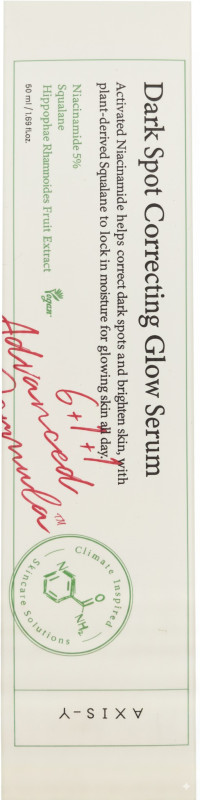 Dark Spot Correcting Glow Serum
Activated Niacinamide helps correct dark spots and brighten skin, with
plant-derived Squalane to lock in moisture for glowing skin all day.
Niacinamide 5%
Squalane
Hippophae Rhamnoides Fruit Extract
50 ml / 1.69 fl.oz.
Vegan
6+1+1
Advanced
Formula™
Climate Inspired
Skincare Solutions
N
O
NH₂
AXIS-Y